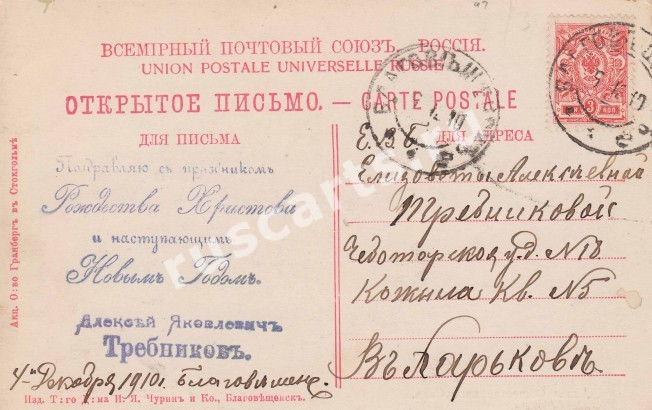 ВСЕМІРНЫЙ ПОЧТОВЫЙ СОЮЗЪ. РОССІЯ.
UNION POSTALE UNIVERSELLE RUSSIE
ОТКРЫТОЕ ПИСЬМО. — CARTE POSTALE
ДЛЯ ПИСЬМА
ДЛЯ АДРЕСА
Поздравляю съ праздникомъ
Рождества Христова
и наступающимъ
Новымъ Годомъ.
Алексѣй Яковлевичъ
Требниковъ.
4 Декабря 1910 г. Благовѣщенс.
Е. В. б.
Елизоветы Алексѣевной
Требниковой
Чеботорская д. № 18
Кожына Кв. № 5
Въ Харьковъ
Акц. О:во Гранбергъ въ Стокгольмѣ
Изд. Т:го Д:ма И. Я. Чуринъ и Ко., Благовѣщенскъ.
3 коп
ruscards.ru